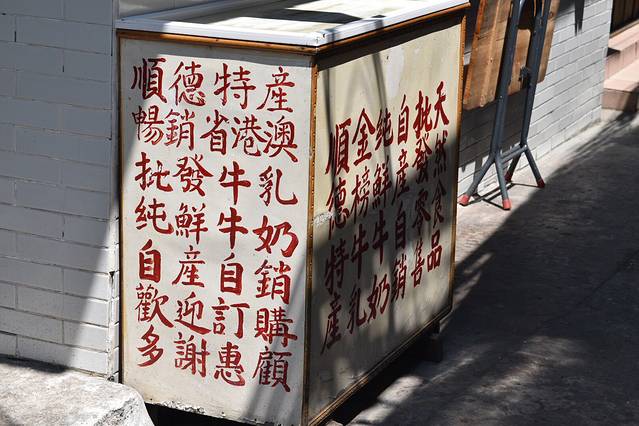 順德特產
暢銷省港澳
批發牛乳
純鮮牛奶
自產自銷
歡迎訂購
多謝惠顧
順德特產
金榜牛乳
純鮮牛奶
自產自銷
批發零售
天然食品